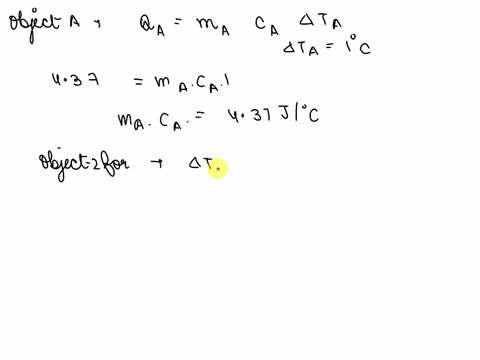 Object A → Q_A = m_A C_A ΔT_A
ΔT_A = 1°C
4.37 = m_A . C_A . 1
m_A . C_A . = 4.37 J/°C
Object-2 for → ΔT.